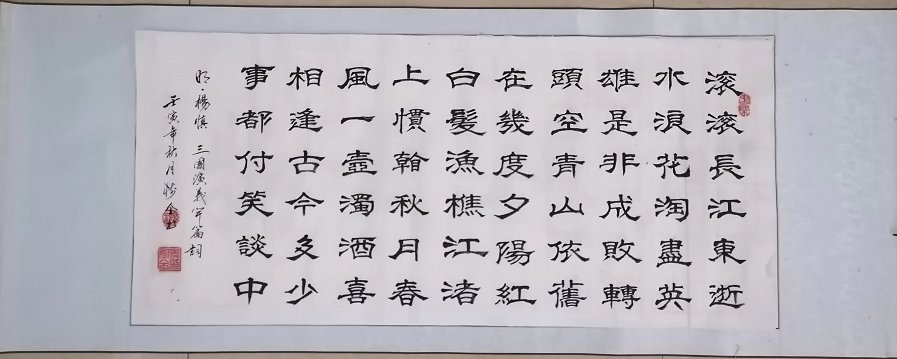 滚滚長江東逝
水浪花淘盡英
雄是非成敗轉
頭空青山依舊
在幾度夕陽紅
白髮漁樵江渚
上慣翰秋月春
風一壺濁酒喜
相逢古今多少
事都付笑談中
明·楊慎 三國演義開篇詞
壬寅年秋月